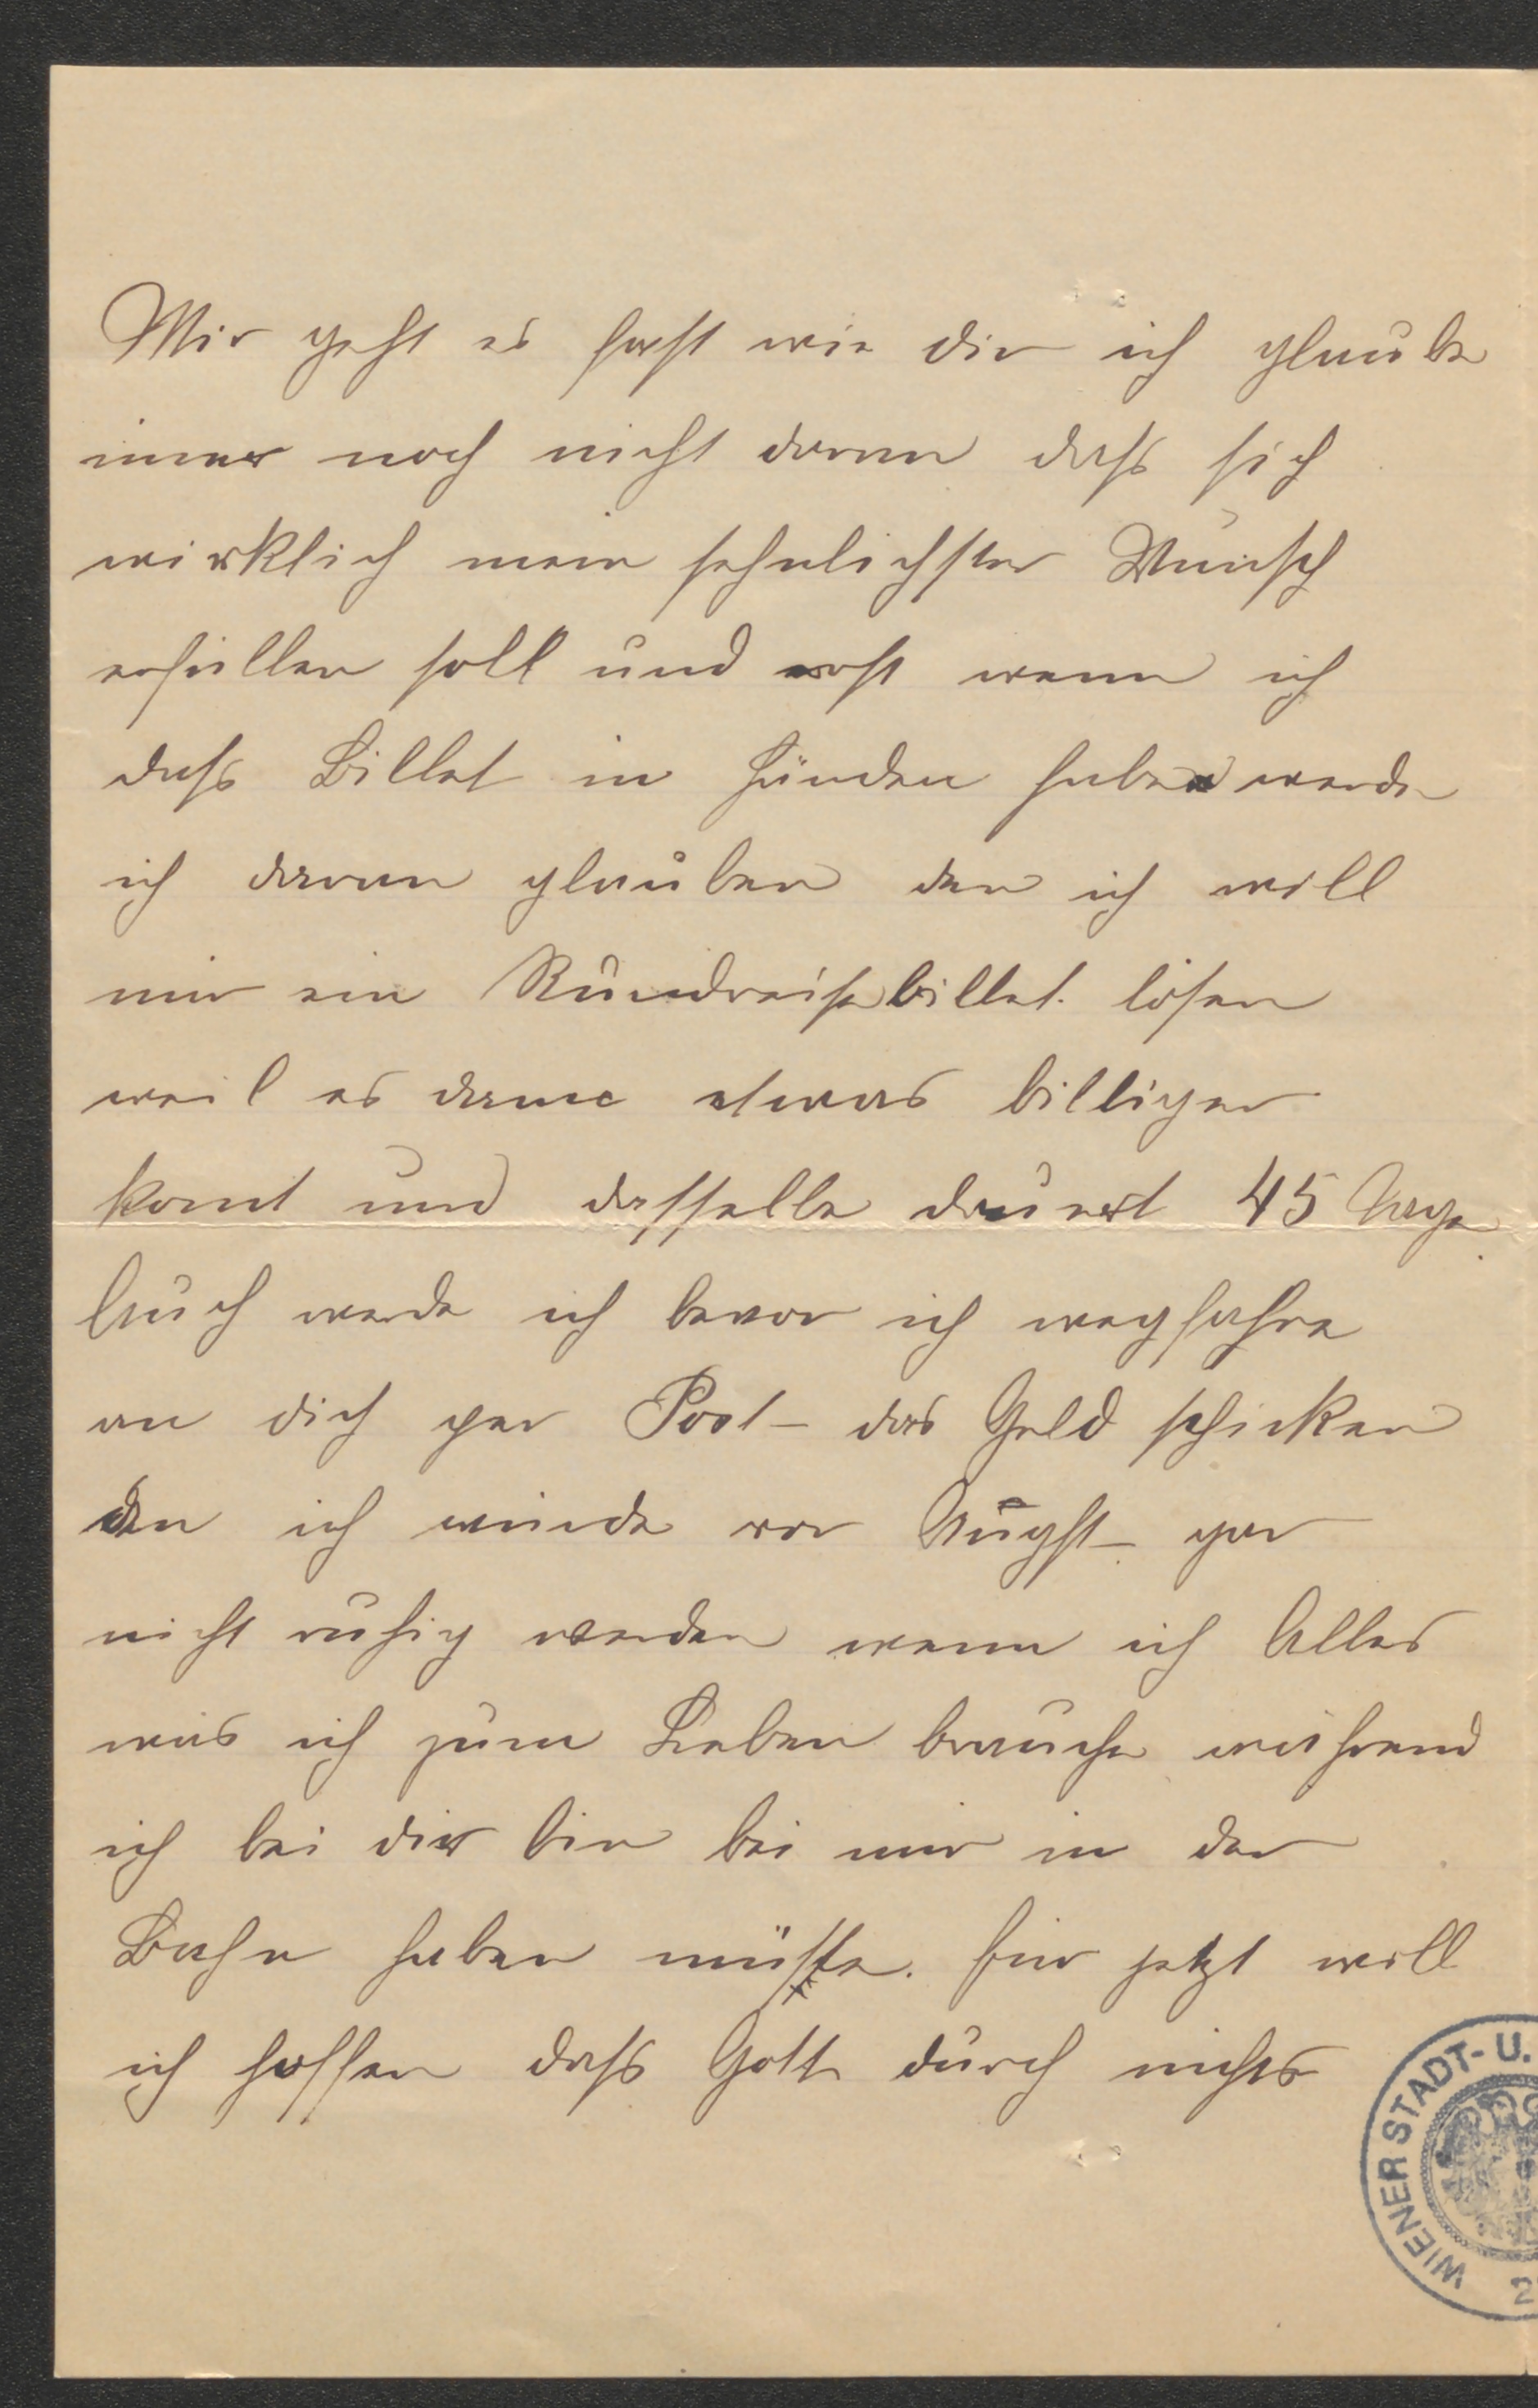 Mir geht es fast wie dir ich glaube
imer noch nicht daran daß sich
wirklich mein sehnlichster Wunsch
erfüllen soll und erst wenn ich
daß Billet in Händen haben werde
ich daran glauben den ich will
mir ein Rundreisebillet lösen
weil es dann etwas billiger
komt und dasselbe dauert 45 Tage
Auch werde ich bevor ich wegfahre
an dich per Post das Geld schicken
den ich würde vor Angst gar
nicht ruhig werden wenn ich Alles
was ich zum Leben brauche während
ich bei dir bin bei mir in der
Bahn haben müßte. für jetzt will
ich hoffen daß Gott durch nichts
WIENER STADT- U.
2